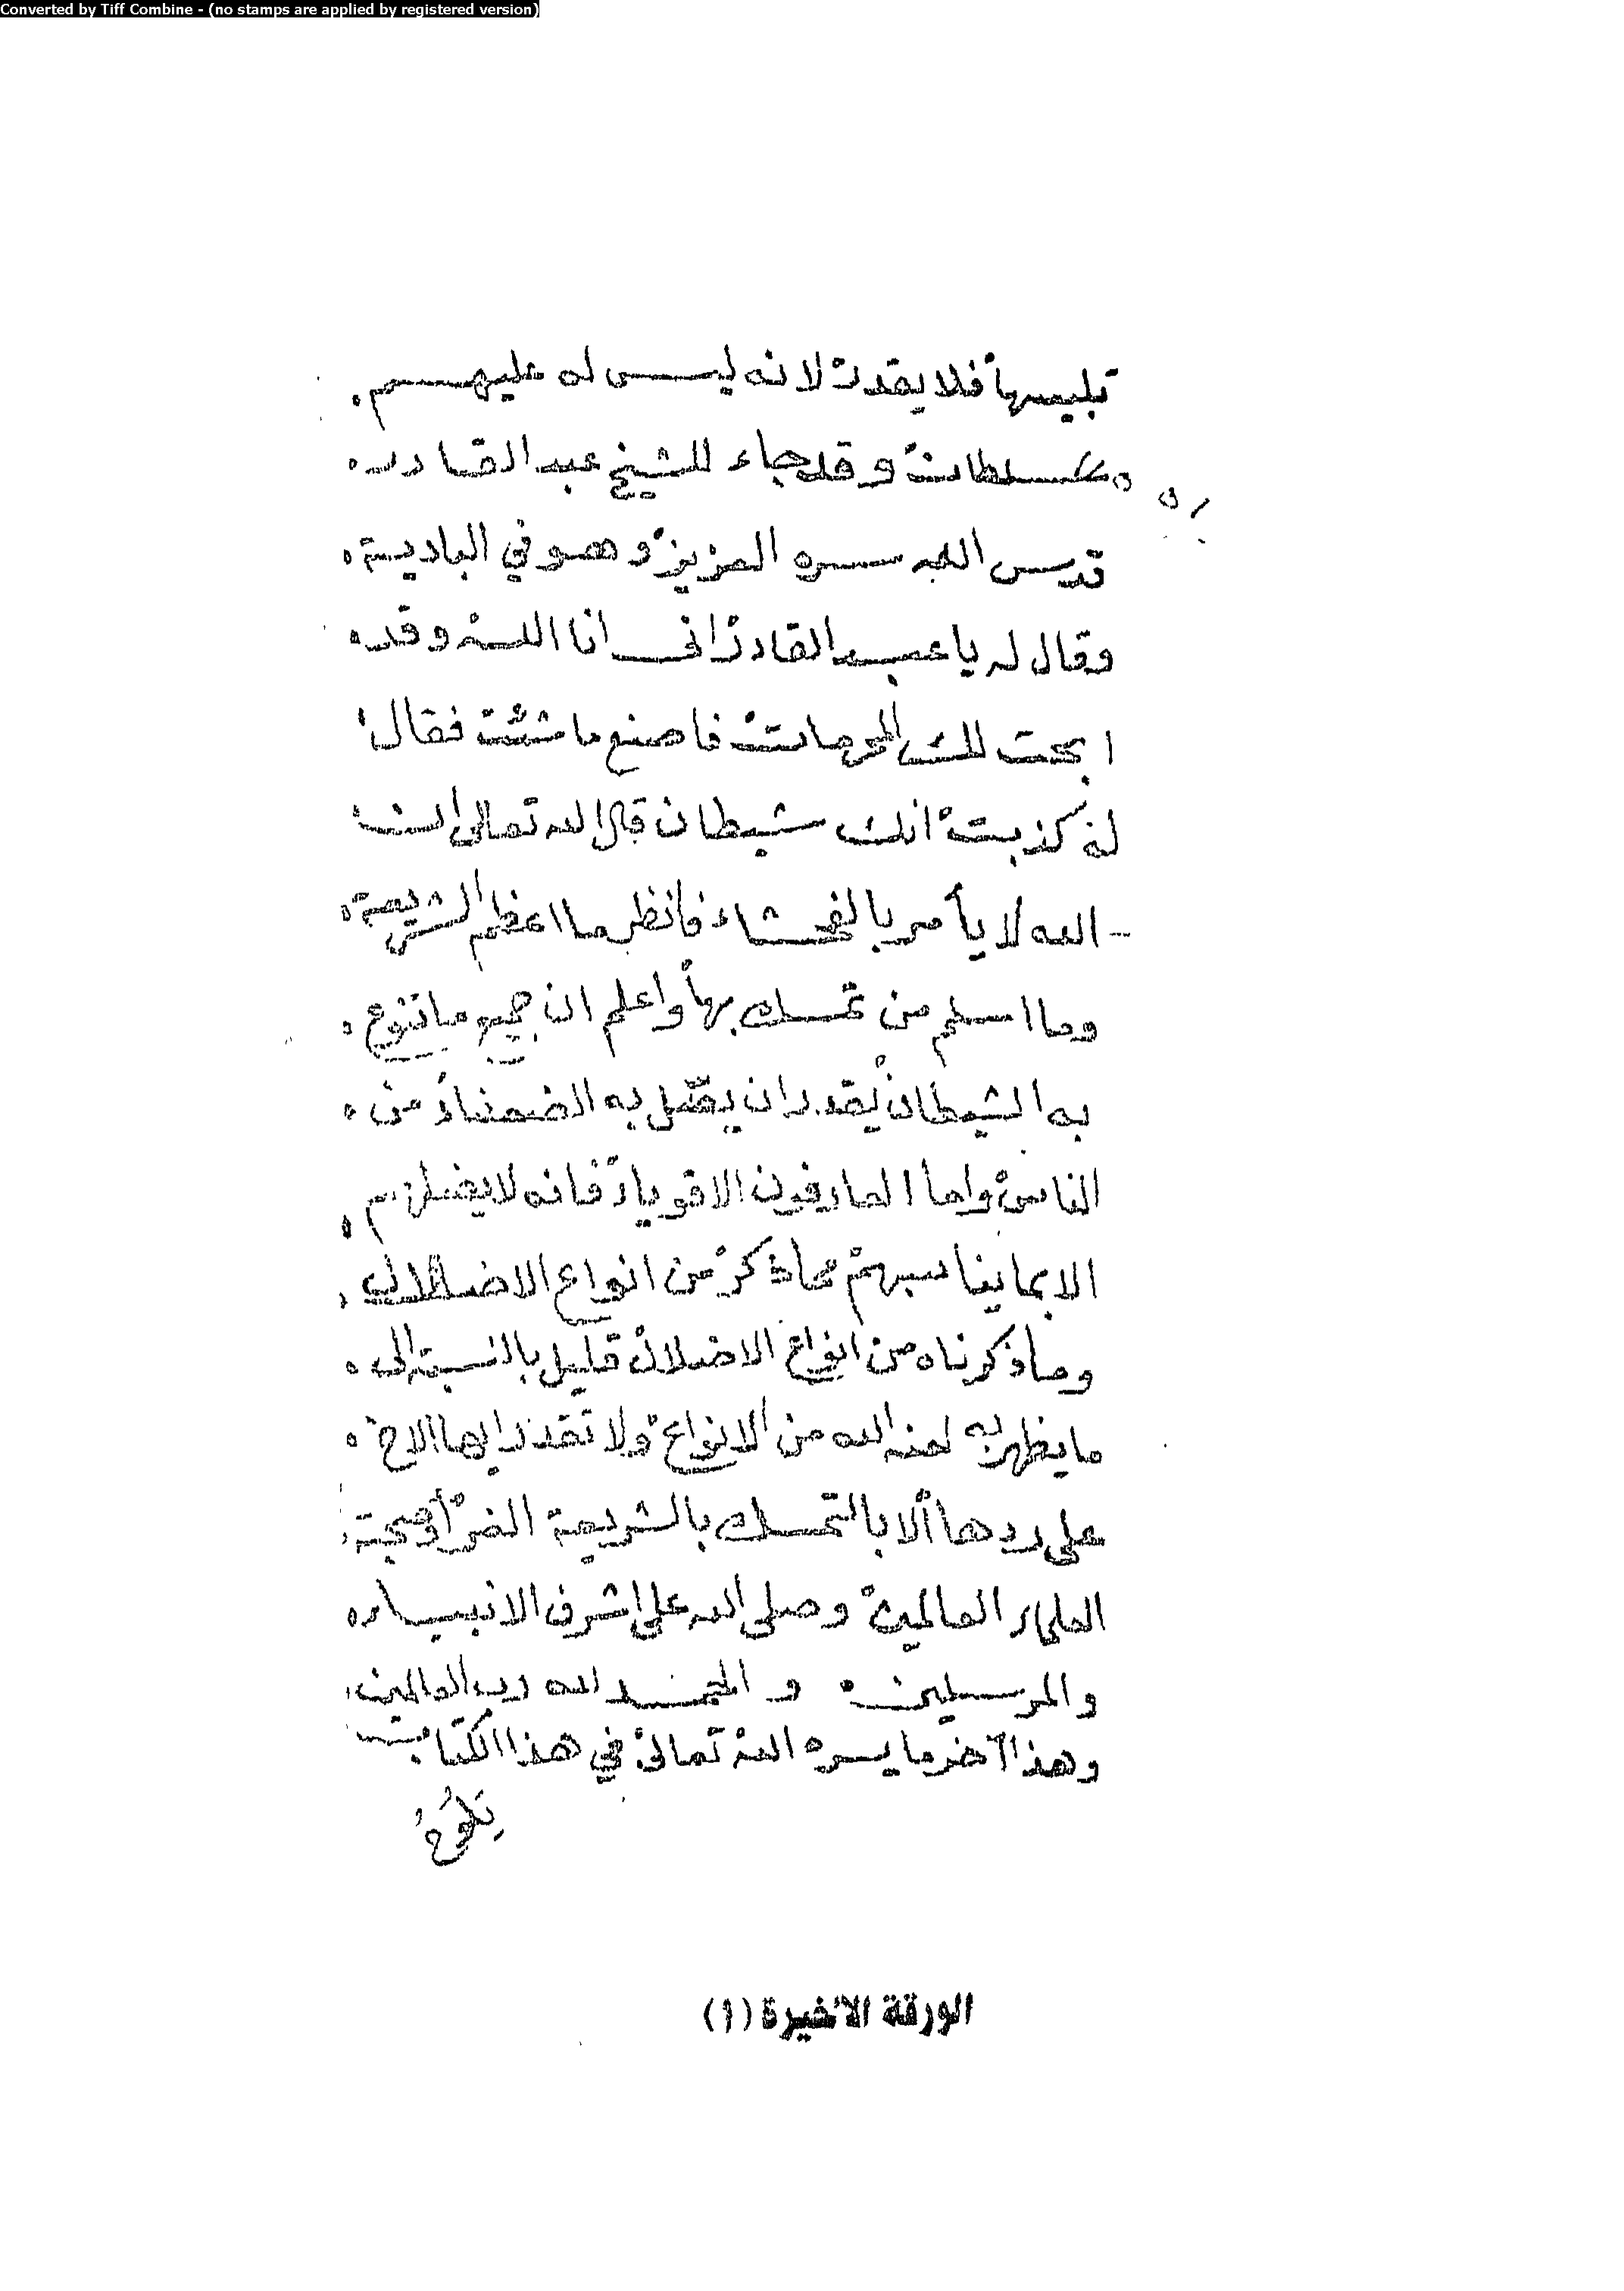 Converted by Tiff Combine - (no stamps are applied by registered version)
تلبيسها فلا يقدر لانه ليس له عليهم
سلطان وقد جاء للشيخ عبد القادر
قدس الله سره العزيز وهو في البادية
وقال له يا عبد القادر انى انا الله وقد
ابحت لك المحرمات فاصنع ما شئت فقال
له كذبت انك شيطان قال الله تعالى ان
الله لا يأمر بالفحشاء فانظر ما اعظم الشريعة
وما اسلم من تمسك بها واعلم ان جميع ما تنوع
به الشيطان يقدر ان يضل به الضعفاء من
الناس واما العارفون الاقوياء فانه لا يضلهم
الا بما يناسبهم مما ذكر من انواع الاضلال
وما ذكرناه من انواع الاضلال قليل بالنسبة الى
ما يظهر به لعنه الله من الانواع ولا تقدر ايها الاخ
على ردها الا بالتمسك بالشريعة الغرا وصحبة
العلماء العالمين وصلى الله على اشرف الانبياء
والمرسلين والحمد لله رب العالمين
وهذا آخر ما يسره الله تعالى في هذا الكتاب
الورقة الأخيرة (أ)